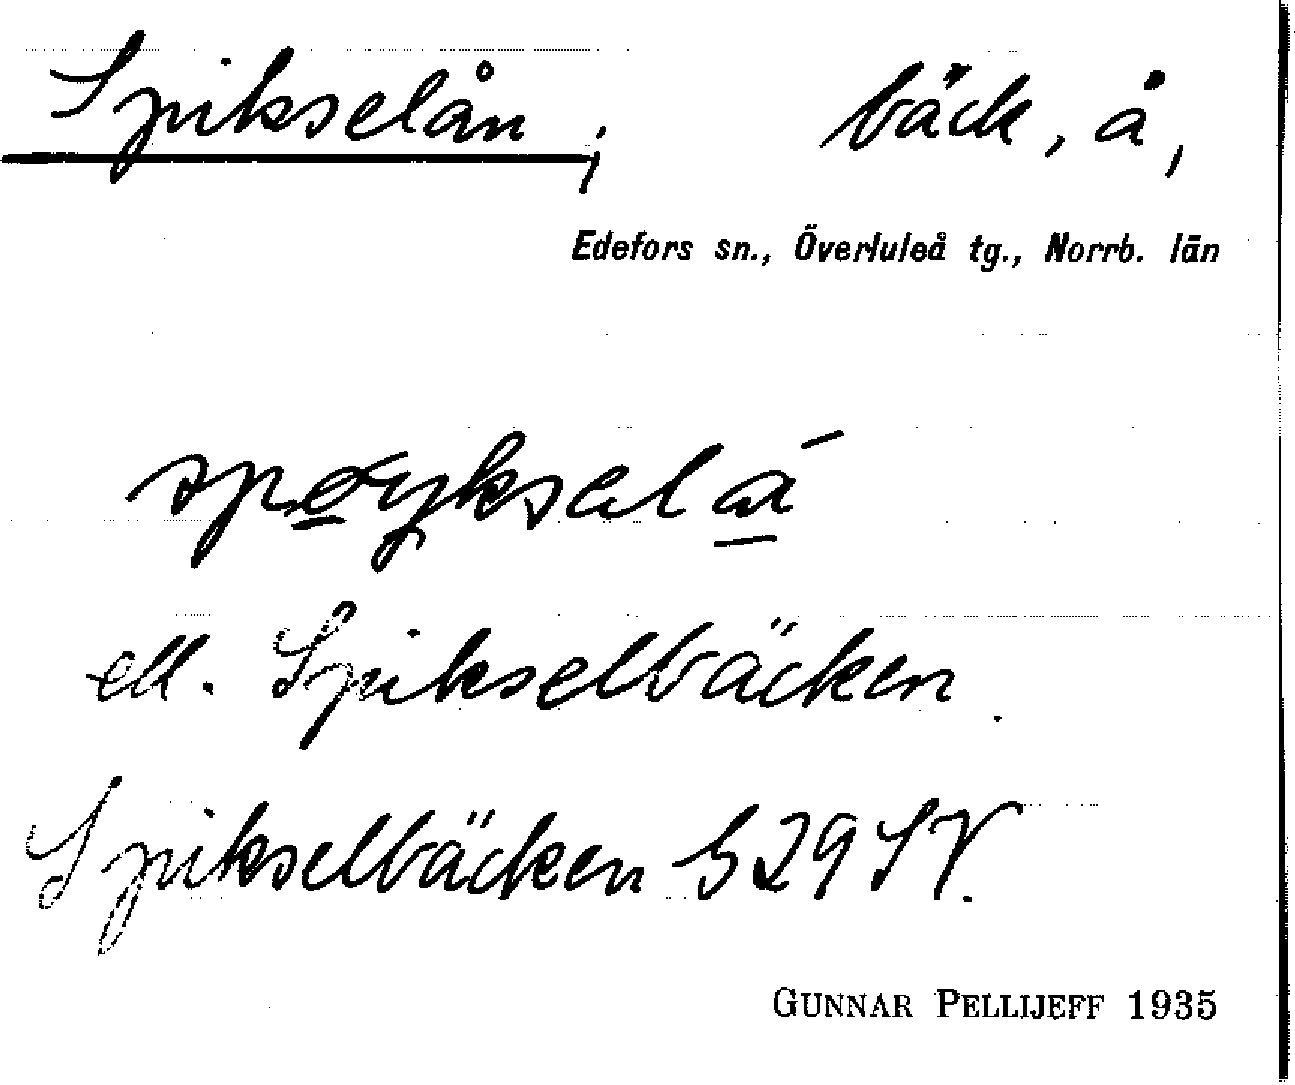 Spikselån; bäck, å,
Edefors sn., Överluleå tg., Norrb. län
ell. Spikselbäcken.
Spikselbäcken b 29 SV.
GUNNAR PELLIJEFF 1935